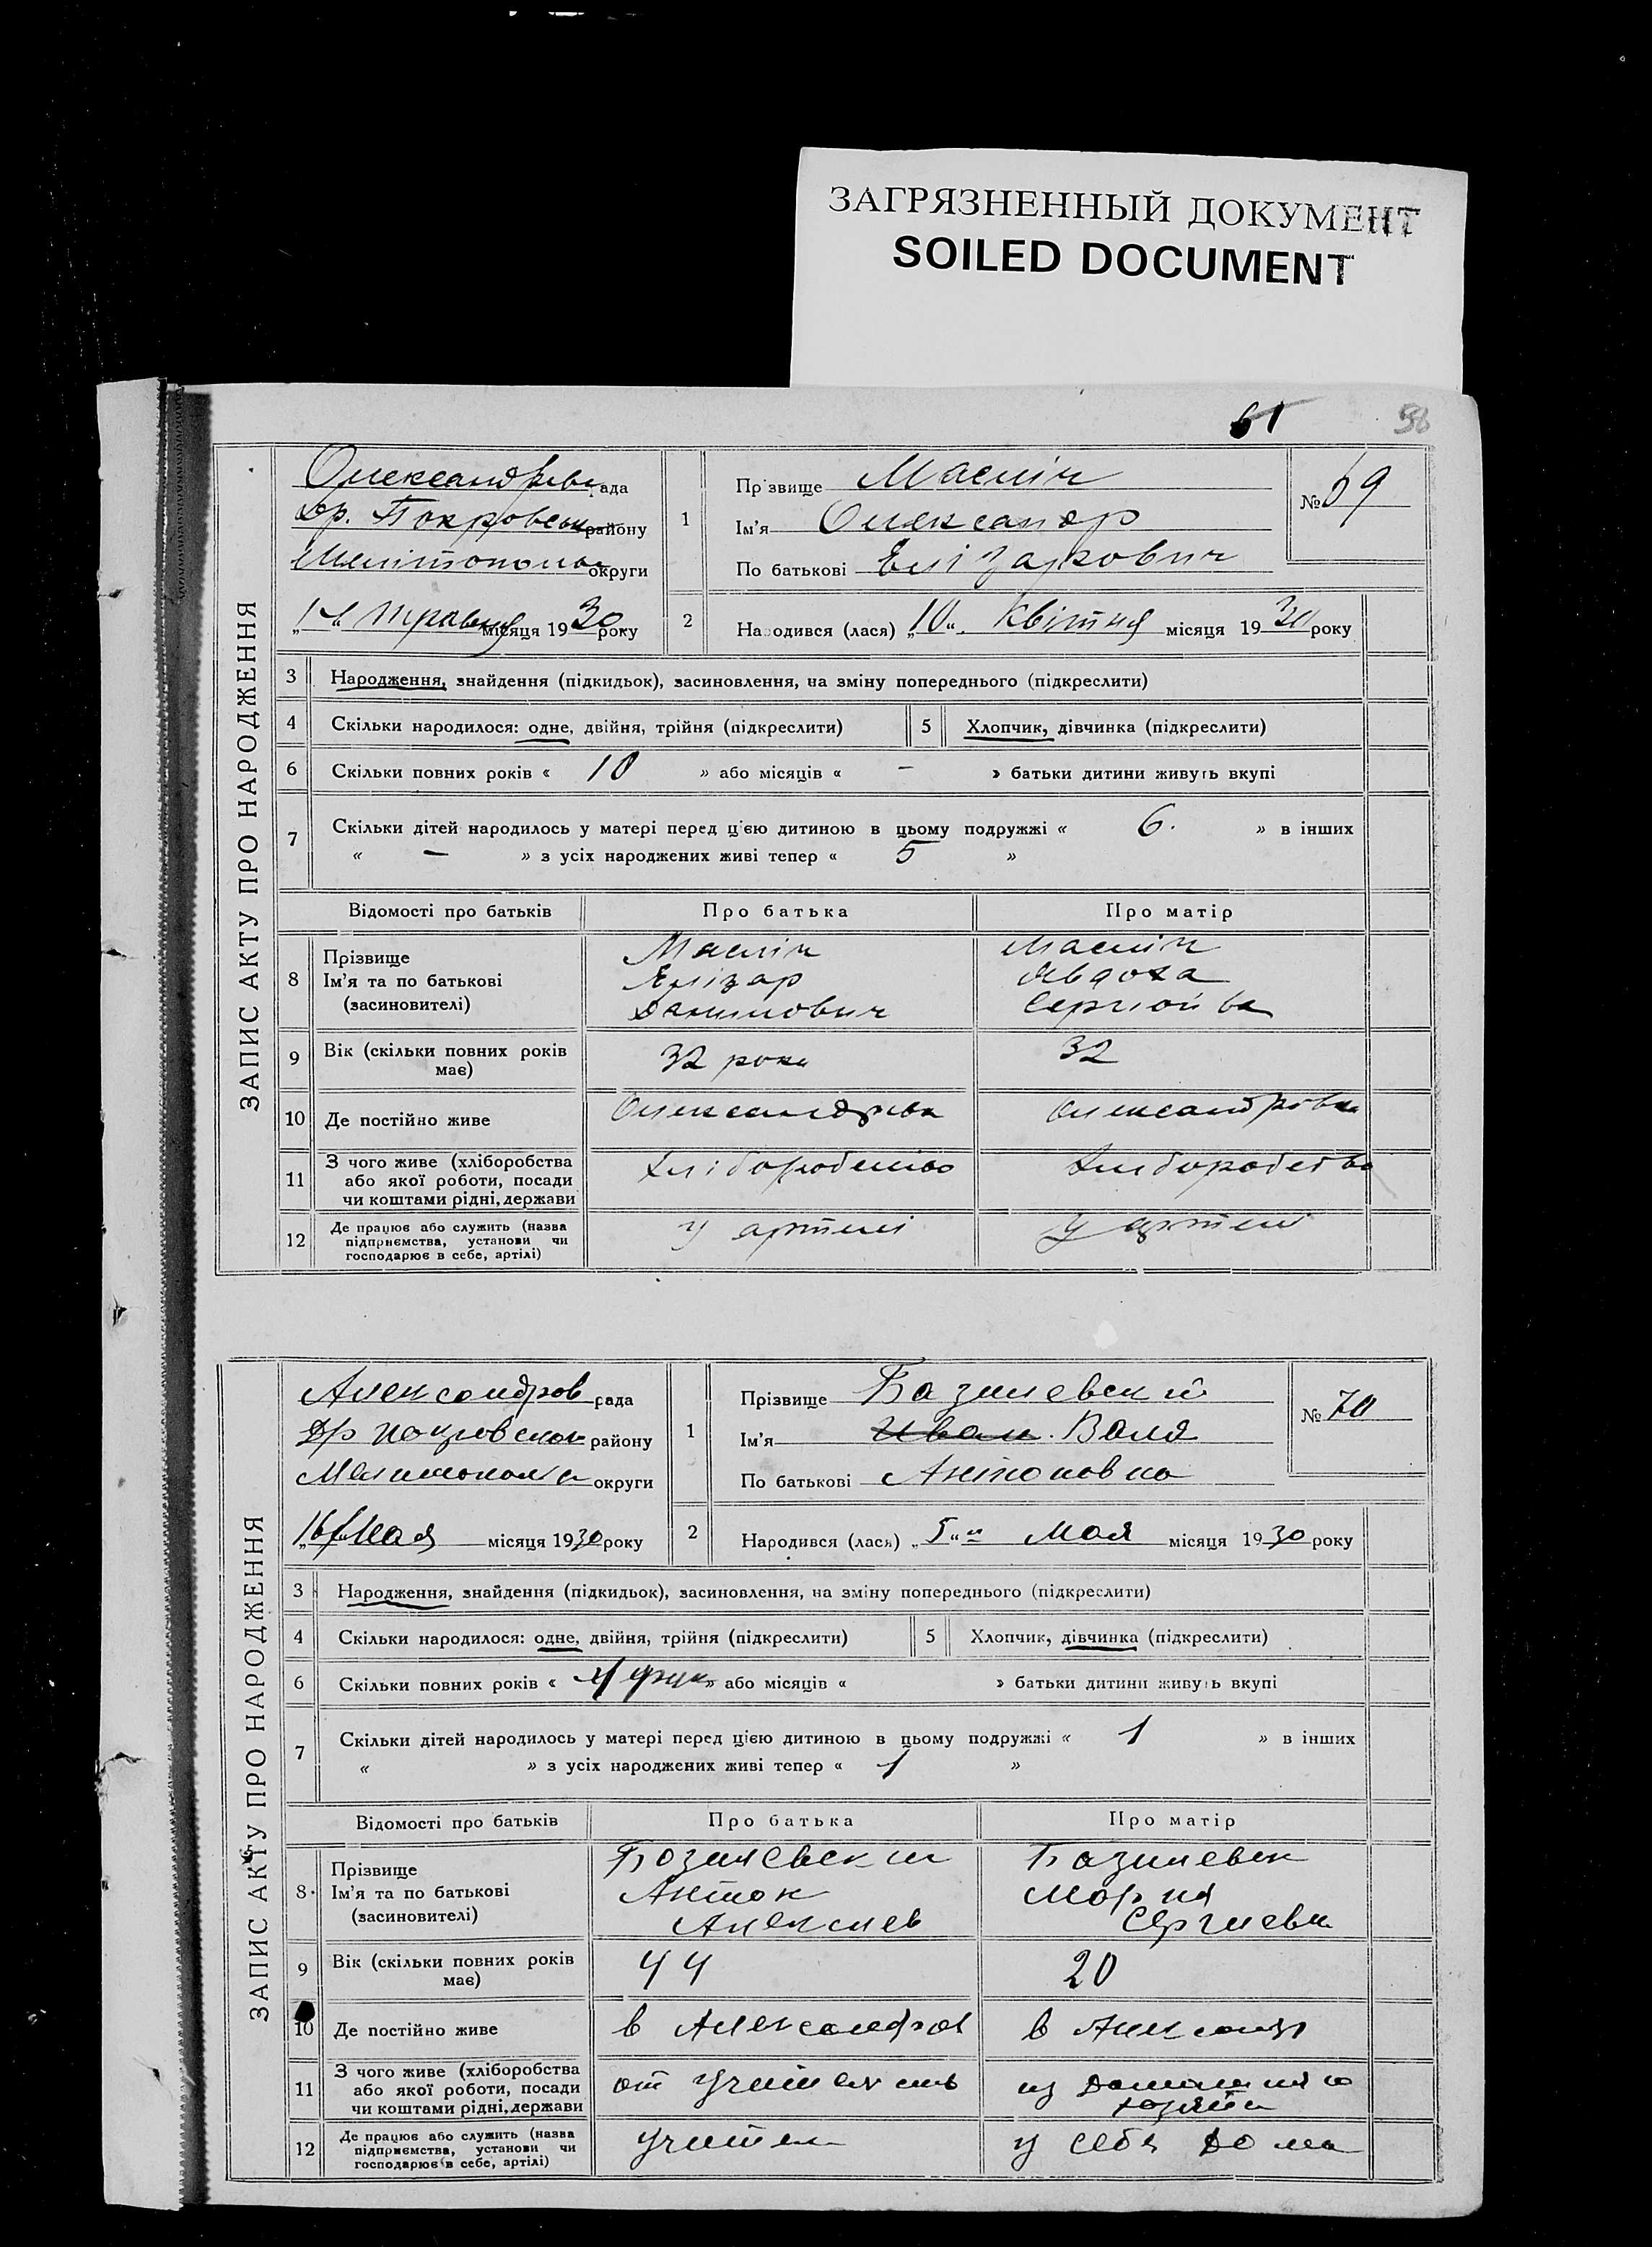 ЗАГРЯЗНЕННЫЙ ДОКУМЕНТ
SOILED DOCUMENT
61
ЗАПИС АКТУ ПРО НАРОДЖЕННЯ
рада
Др. Покровськ району
округи
місяця 1930 року
1 Прізвище Маслін
Ім'я Олександр
По батькові Елізарович
№ 69
2 Народився (лася) „10“ квітня місяця 1930 року
3 Народження, знайдення (підкидьок), засиновлення, на зміну попереднього (підкреслити)
4 Скільки народилося: одне, двійня, трійня (підкреслити) 5 Хлопчик, дівчинка (підкреслити)
6 Скільки повних років « 10 » або місяців « – » батьки дитини живуть вкупі
7 Скільки дітей народилось у матері перед цією дитиною в цьому подружжі « 6. » в інших
« – » з усіх народжених живі тепер « 5 »
Відомості про батьків Про батька Про матір
8 Прізвище Маслін Маслін
Ім'я та по батькові Елізар Явдоха
(засиновителі) Данилович
9 Вік (скільки повних років має) 32 роки 32
10 Де постійно живе Олександрівка Олександровка
11 З чого живе (хліборобства
або якої роботи, посади
чи коштами рідні, держави
12 Де працює або служить (назва у артілі у артелі
підприємства, установи чи
господарює в себе, артілі)
ЗАПИС АКТУ ПРО НАРОДЖЕННЯ
Александров рада
Др Покровског району
округи
16 Мая місяця 1930 року
1 Прізвище Базилевский
Ім'я Иван. Валя
По батькові Антоновна
№ 70
2 Народився (лася) „5“ Мая місяця 1930 року
3 Народження, знайдення (підкидьок), засиновлення, на зміну попереднього (підкреслити)
4 Скільки народилося: одне, двійня, трійня (підкреслити) 5 Хлопчик, дівчинка (підкреслити)
6 Скільки повних років « » або місяців « » батьки дитини живуть вкупі
7 Скільки дітей народилось у матері перед цією дитиною в цьому подружжі « 1 » в інших
« » з усіх народжених живі тепер « 1 »
Відомості про батьків Про батька Про матір
8 Прізвище Базилевский Базилевск
Ім'я та по батькові Антон Мария
(засиновителі) Алексиев Сергиевн
9 Вік (скільки повних років має) 44 20
10 Де постійно живе в Александров в
11 З чого живе (хліборобства от
або якої роботи, посади
чи коштами рідні, держави
12 Де працює або служить (назва учител у себя дома
підприємства, установи чи
господарює в себе, артілі)